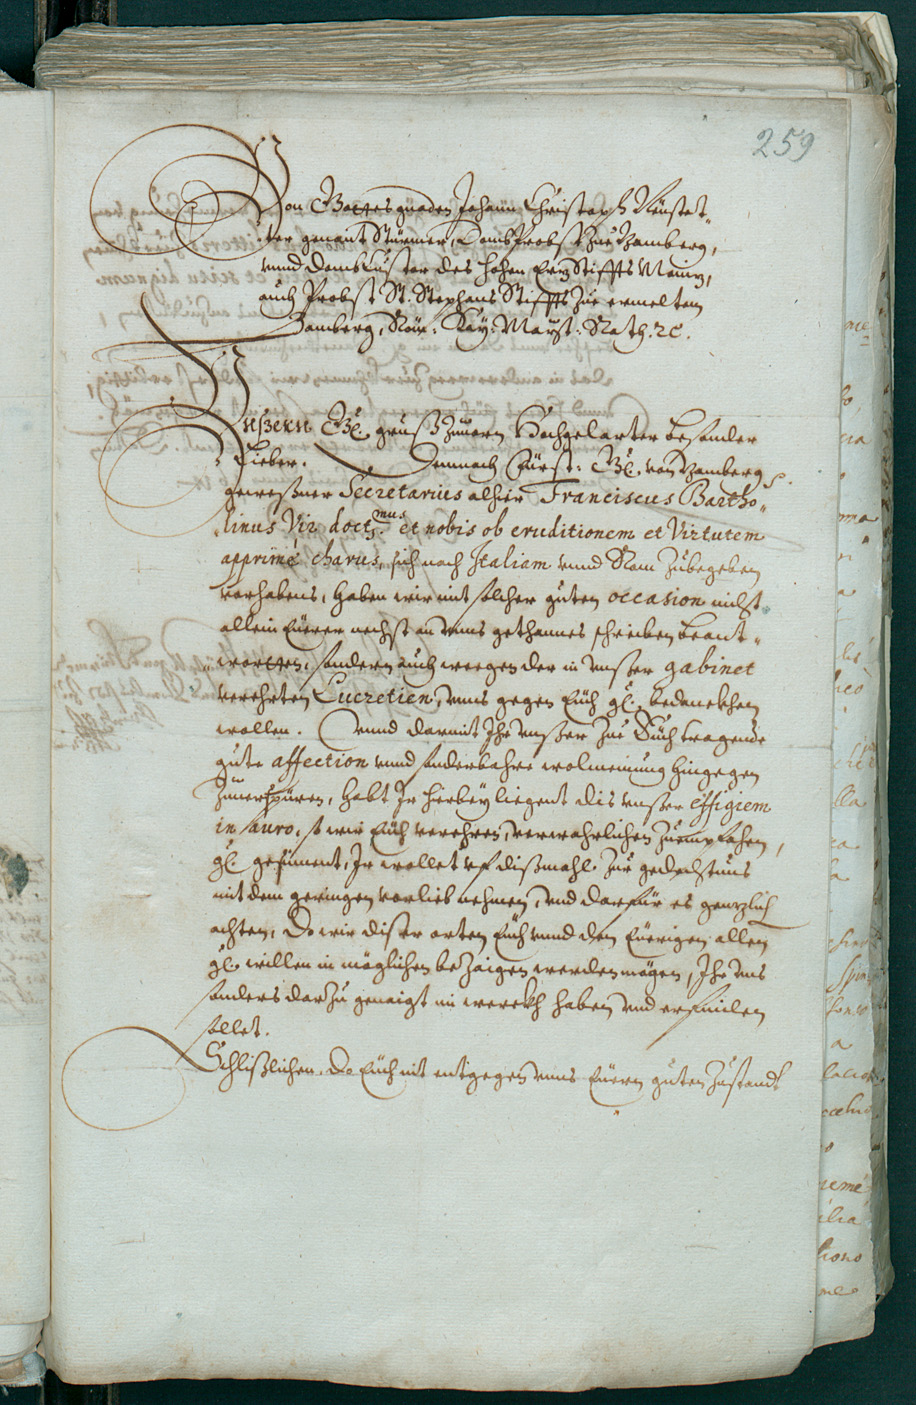 259
Von Gottes gnaden Johann Christoph Neustet-
ter genant Stürmer, Dombprobst zue Bamberg,
unnd Dombcustor des hohen ErzStiffts Mainz,
auch Probst St. Stephans Stiffts zue ermeltem
Bamberg, Röm: Kay: Mayst: Rath. ꝛc.
Unßern Gl. gruß zuvorn Hochgelarter besonder
Lieber. Demnach Fürst: Gl. von Bamberg
geweßner Secretarius alhier Franciscus Bartho-
linus Vir doctmus. et nobis ob eruditionem et Virtutem
apprimé charus, sich nach Italiam unnd Rom zubegeben
vorhabens, haben wir mit solcher guten occasion nitst
allein Eurer nechst an unns gethannes schreiben beant-
worten, sondern auch wegen der in unßer gabinet
verehrten Lucretien, unns gegen Euch gl. bedanckhen
wollen. Unnd darmit Ihr unßer zue Euch tragende
gute affection unnd sonderbahre wolmeinung hingegen
zuverspüren, habt Ir hierbey liegent dis unßer effigiem
in auro, so wir Euch verehren, verwahrlichen zuempfahen,
gl. gesinnent, Ir wollet uf dißmahl zur gedechtnus
mit dem geringen vorlieb nehmen, und darfür es genzlich
achten, Do wir diser orten Euch unnd den Eurigen allen
gl. willen in möglichen bezaigen werden mögen, Ihr uns
sonders darzu genaigt im werckh haben und erfinden
sollet.
Schlißlichen, Do Euch nit entgegen unns Euern guten Zustandt